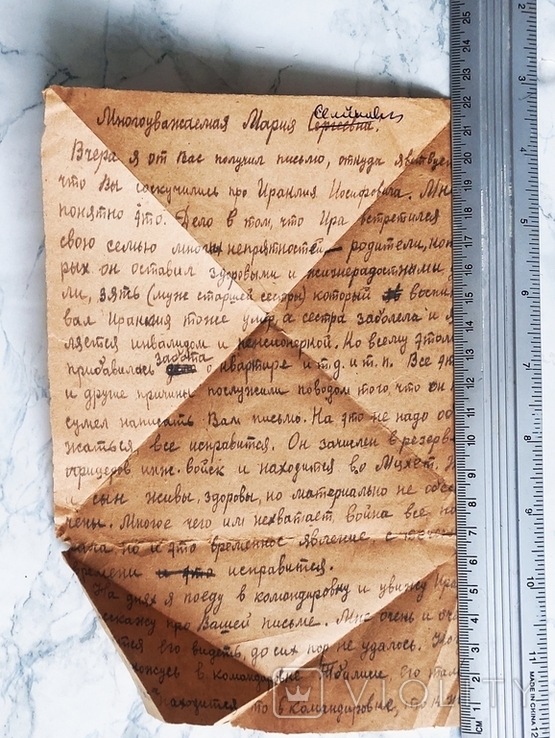 Многоуважаемая Мария Сергеевна.
Вчера я от Вас получил письмо, откуда явствуе
что Вы соскучились про Ираклия Иосифовича. Мн
понятно это. Дело в том, что Ира встретился
свою семью много неприятностей родители, кот
рых он оставил здоровыми и жизнерадостными,
ли, зять (муж старшей сестры) который воспи
вал Ираклия тоже умер, а сестра заболела и я
ляется инвалидом и пенсионеркой. Ко всему этом
прибавилась забота о квартире и т.д. и т.п. Все эт
и другие причины послужили поводом того, что он н
сумел написать Вам письмо. На это не надо об
жаться все исправится. Он зачислен в резерв
офицеров инж. войск и находится во Мцхет.
и сын живы, здоровы, но материально не обес
чены. Многое чего им нехватает, война все
но и это временное явление с
времени и это исправится.
На днях я поеду в командировку и увижу
скажу про Вашей письме. Мне очень и
его видеть, до сих пор не удалось.
в командировке Тбилиси, его
находится то в командировке, то
VIOLITY
MADE IN CHINA
СМ 1 2 3 4 5 6 7 8 9 10 11 12 13 14 15 16 17 18 19 20 21 22 23 24 25
2 3 4 5 6 7 8 9 10 11 12